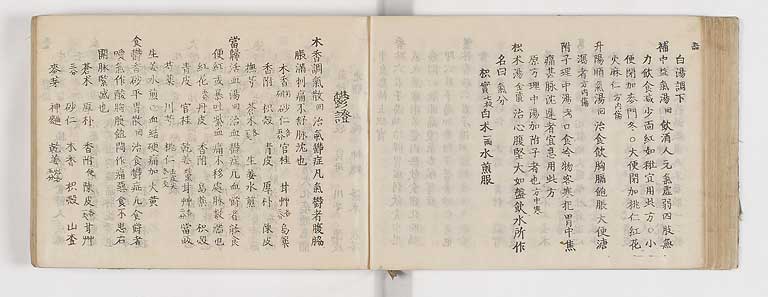 白湯調下
補中益氣湯 飲酒人元氣虛弱四肢無
力飲食減少面紅如粧宜用此方○小
便閉加麥門冬○大便閉加桃仁紅花
火麻仁
升陽順氣湯 治食飲胸膈飽脹大便溏
瀉者
附子理中湯 口食冷物寒犯胃中焦
痛甚脉沈遲者宜急用此方
原方理中湯加附子者也
枳朮湯 治心腹堅大如盤飲水所作
名曰氣分
枳實 白朮 水煎服
鬱證
木香調氣散 治氣鬱症凡氣鬱者腹脇
脹滿刺痛不舒脉沈也
木香 砂仁 官桂 甘艸 烏藥
香附 枳殼 青皮 厚朴 陳皮
撫芎 蒼朮 生姜水煎
當歸活血湯 治血鬱症凡血鬱者能食
便紅或暴吐紫血痛不移處脉數濇也
紅花 丹皮 香附 烏藥 枳殼
青皮 官桂 乾姜 甘艸 當歸
芍藥 川芎 桃仁
生姜水煎 血結硬痛加大黃
食鬱 平胃散 治食鬱症凡食鬱者
噯氣作酸胸腹飽悶作痛惡食不思右
關脉緊盛也
蒼朮 厚朴 香附 陳皮 甘艸
砂仁 木香 枳殼 山查
麥芽 神麯 乾姜